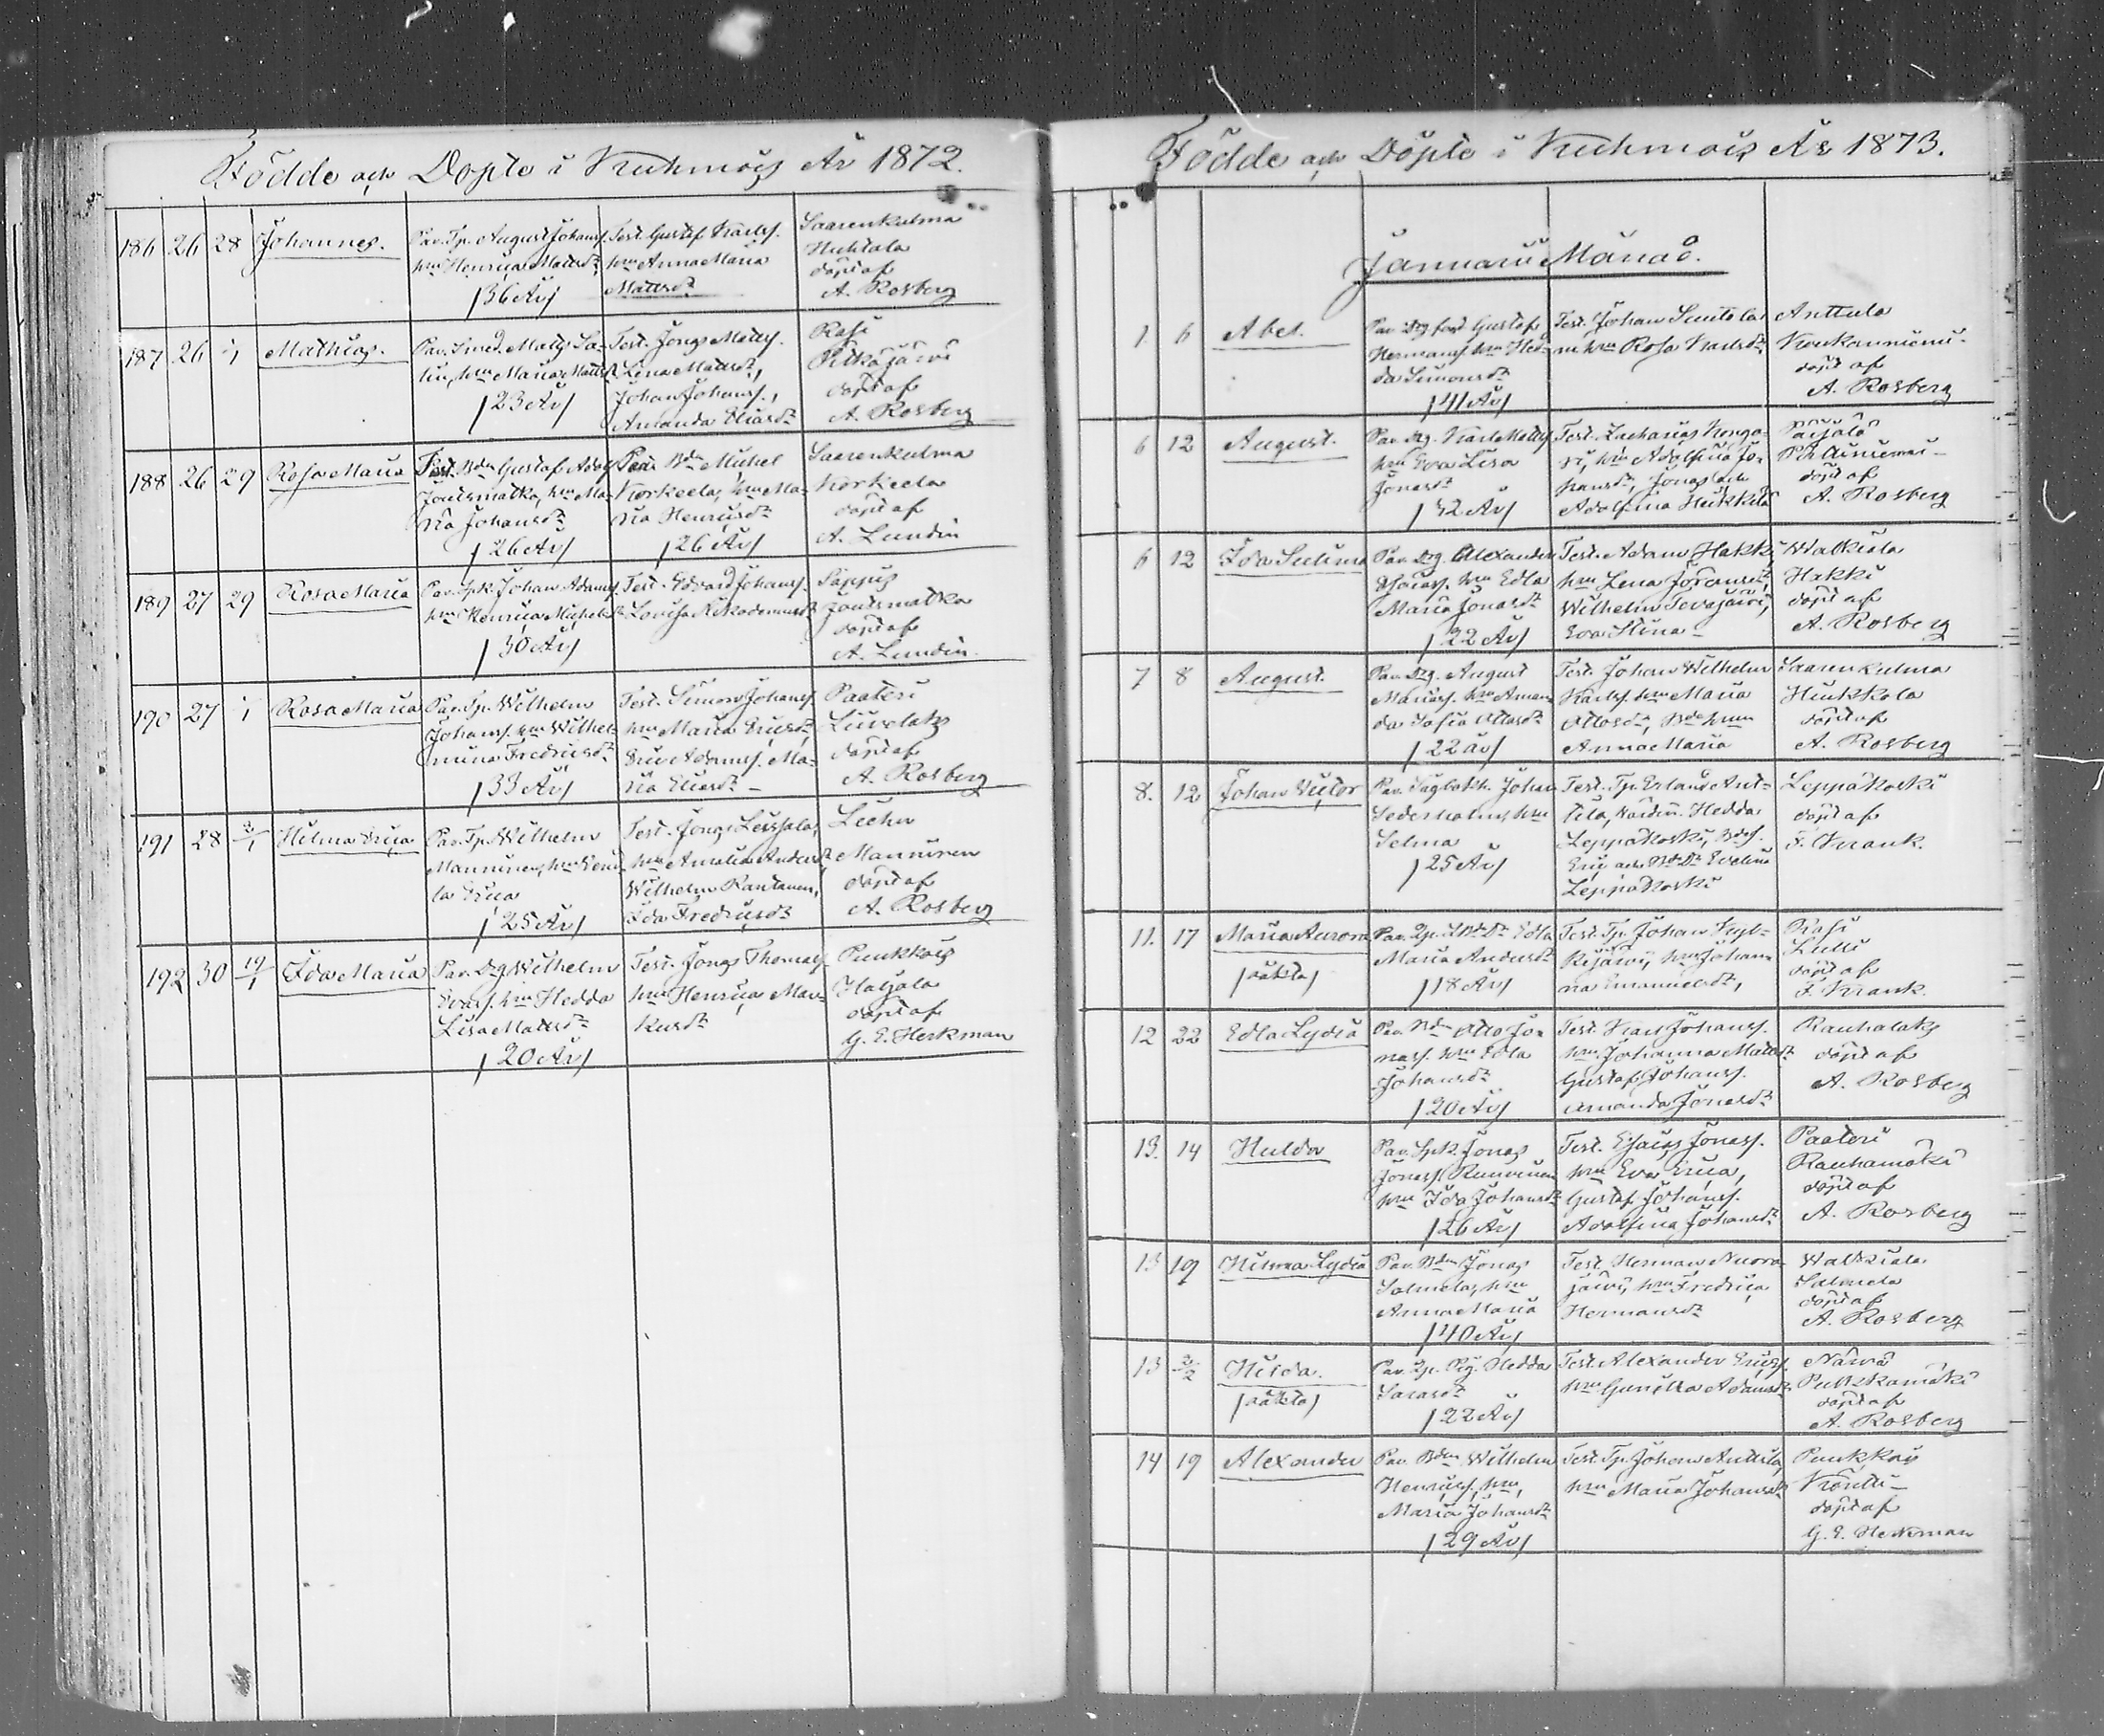 Födde och Döpte i Kuhmois År 1872.
186 26 28 Johannes.
Par. Tp. August Johanss.
hm Henrica Mattsdr
/36 År/
Test. Gustaf Karlss.
hm Anna Maria
Mattsdr
Saarenkulma
Huhtala
döpt af
A. Rosberg
187 26 1/1 Mathias.
Par. Smed. Matts Sa-
lin, hm Maria Mattsdr
/23 År/
Test. Jonas Mattss.
Lena Mattsdr,
Johan Johanss.,
Amanda Eliasdr
Rasi
Pitkäjärvi
döpt af
A. Rosberg
188 26 29 Rosa Maria
Bdn Gustaf Adolf
Joutsmatka, hm Ma-
ria Johansdr
/26 År/
Bdn Mickel
Korkeela, hm Ma-
ria Henricsdr
/26 År/
Saarenkulma
Korkeela
döpt af
A. Lundin
189 27 29 Rosa Maria
Par. Spk. Johan Adamss.
hm Henrica Michelsdr
/30 År/
Test. Edvard Johanss.
Lovisa Nikodemusdr
Säppis
Joutsmatka
döpt af
A. Lundin.
190 27 1/1 Rosa Maria
Par. Tp. Wilhelm
Johanss. hm Wilhel-
mina Fredricsdr
/33 År/
Test. Simon Johanss.
hm Maria Ericsdr,
Eric Adamss. Ma-
ria Eliasdr –
Paateri
Liuvelaks
döpt af
A. Rosberg
191 28 2/1 Hilma Erica
Par. Tp. Wilhelm
Manninen, hm
Erica
/25 År/
Test. Jonas
hm Amalia Andersdr
Wilhelm Rantanen,
Ida Fredricsdr
Manninen
döpt af
A. Rosberg
192 30 19/1 Ida Maria
Par. Drg Wilhelm
hm Hedda
Lisa Mattsdr
/20 År/
Test. Jonas Thomass.
hm Henrica Mar-
kusdr
Puukkois
Hatjala
döpt af
G. E. Heikman
Födde och Döpte i Kuhmois År 1873.
Januarii Månad.
1 6 Abel.
Par. Drg Gustaf
Hermanss. hm Hed-
da Simonsdr
/41 År/
Test. Johan Suutela
hm Rosa Karlsdr
Anttula
Koukanniemi.
döpt af
A. Rosberg
6 12 August.
Par. Drg. Karl Mattss.
hm Eva Lisa
Jonasdr
/32 År/
Test. Zacharias
hm Adolfina Jo-
hansdr, Jonas och
Adolfina Hukkila
Päijälä
döpt af
A. Rosberg
6 12 Ida Selima
Par. Drg. Alexander
Esaiass. hm Edla
Maria Jonasdr
/22 År/
Test. Adam Hakki,
hm Lena
Wilhelm
Eva Stina –
Walkiala
Hakki
döpt af
A. Rosberg
7 8 August.
Par. Drg. August
hm Aman-
da Sofia Ottosdr
/22 år/
Test. Johan Wilhelm
Karlss. hm Maria
Ottosdr,
Anna Maria
Saarenkulma
Hukkola
döpt af
A. Rosberg
8. 12 Johan Victor
Par. Johan
Sederholm, hm
Selma
/25 År/
Test. Tp. Erland Ant-
tila, Hedda
Leppäkoski, Bdss.
Eric och Evelina
Leppäkoski
Leppäkoski
döpt af
F. Krank.
11. 17 Maria Aurora
/oäkta/
Par. Edla
Maria Andersdr
/18 År/
Test. Tp. Johan
hm Johan-
na Emanuelsdr,
Rasi
döpt af
F. Krank.
12 22 Edla Lydia
Par. Bdn Otto Jo-
nass. hm Edla
Johansdr
/20 År/
Test. Karl Johanss.
hm Johanna Mattsdr
Gustaf Johanss.
Amanda Jonasdr
Rauhalaks
döpt af
A. Rosberg
13. 14 Hulda
Par. Spk. Jonas
Jonass.
hm Ida Johansdr
/26 År/
Test. Esaias Jonass.
hm Eva Erica,
Gustaf Johanss.
Adolfina Johansdr
Paateri
Rauhamäki
döpt af
A. Rosberg
13 19 Hilma Lydia
Par. Bdn Jonas
Salmela, hm
Anna Maria
/40 År/
Test. Herman Nuora-
järvi, hm Fredrica
Hermansdr
Walkiala
Salmela
döpt af
A. Rosberg
13 2/2 Hilda.
/oäkta/
Par. Hedda
/22 År/
Test. Alexander Ericss.
hm Gunilla Adamsdr
Närvä
Pukkamäki
döpt af
A. Rosberg
14 19 Alexander
Par. Bdn Wilhelm
Henricss. hm,
Maria Johansdr
/29 År/
Test. Tp. Johan Anttila,
hm Maria Johansdr
Puukkois
döpt af
G. E. Heikman